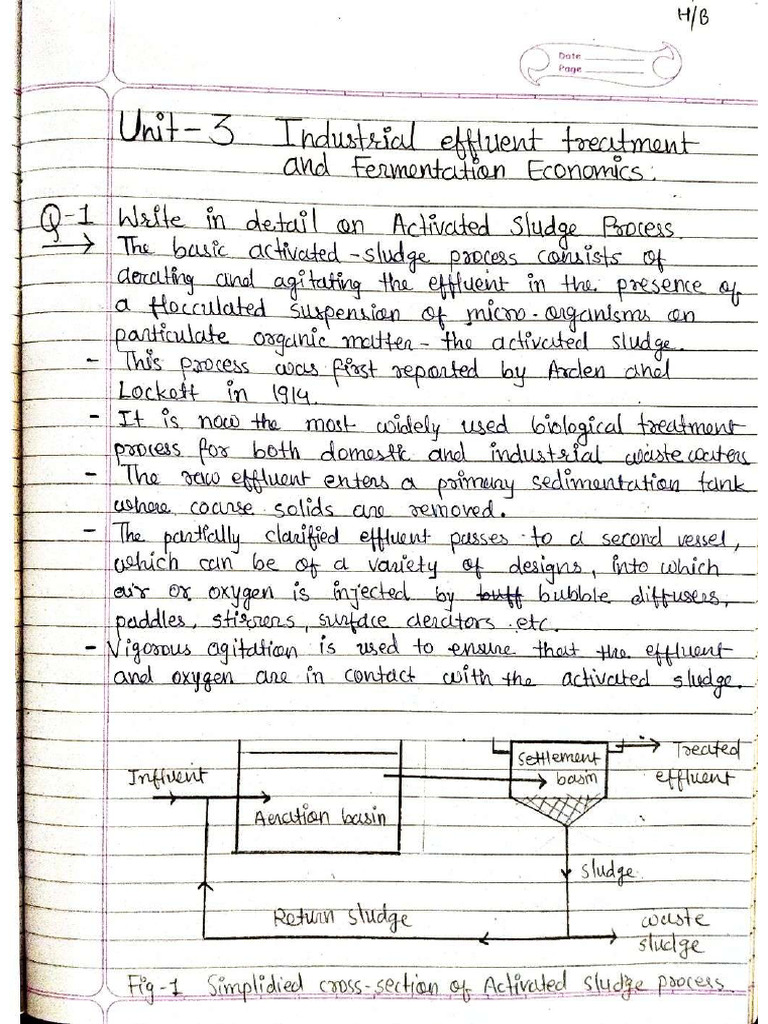 H/B
Date
Page
Unit-3 Industrial effluent treatment
and Fermentation Economics:
Q-1 Write in detail on Activated Sludge Process
→ The basic activated-sludge process consists of
aerating and agitating the effluent in the presence of
a flocculated suspension of micro-organisms on
particulate organic matter - the activated sludge.
- This process was first reported by Arden and
Lockett in 1914.
- It is now the most widely used biological treatment
process for both domestic and industrial waste waters
- The raw effluent enters a primary sedimentation tank
where coarse solids are removed.
- The partially clarified effluent passes to a second vessel,
which can be of a variety of designs, into which
air or oxygen is injected by buff bubble diffusers,
paddles, stirrers, surface aerators etc.
- Vigorous agitation is used to ensure that the effluent
and oxygen are in contact with the activated sludge.
Influent
Aeration basin
Settlement
basin
Treated
effluent
sludge
Return sludge
waste
sludge
Fig-1 Simplidied cross-section of Activated sludge process